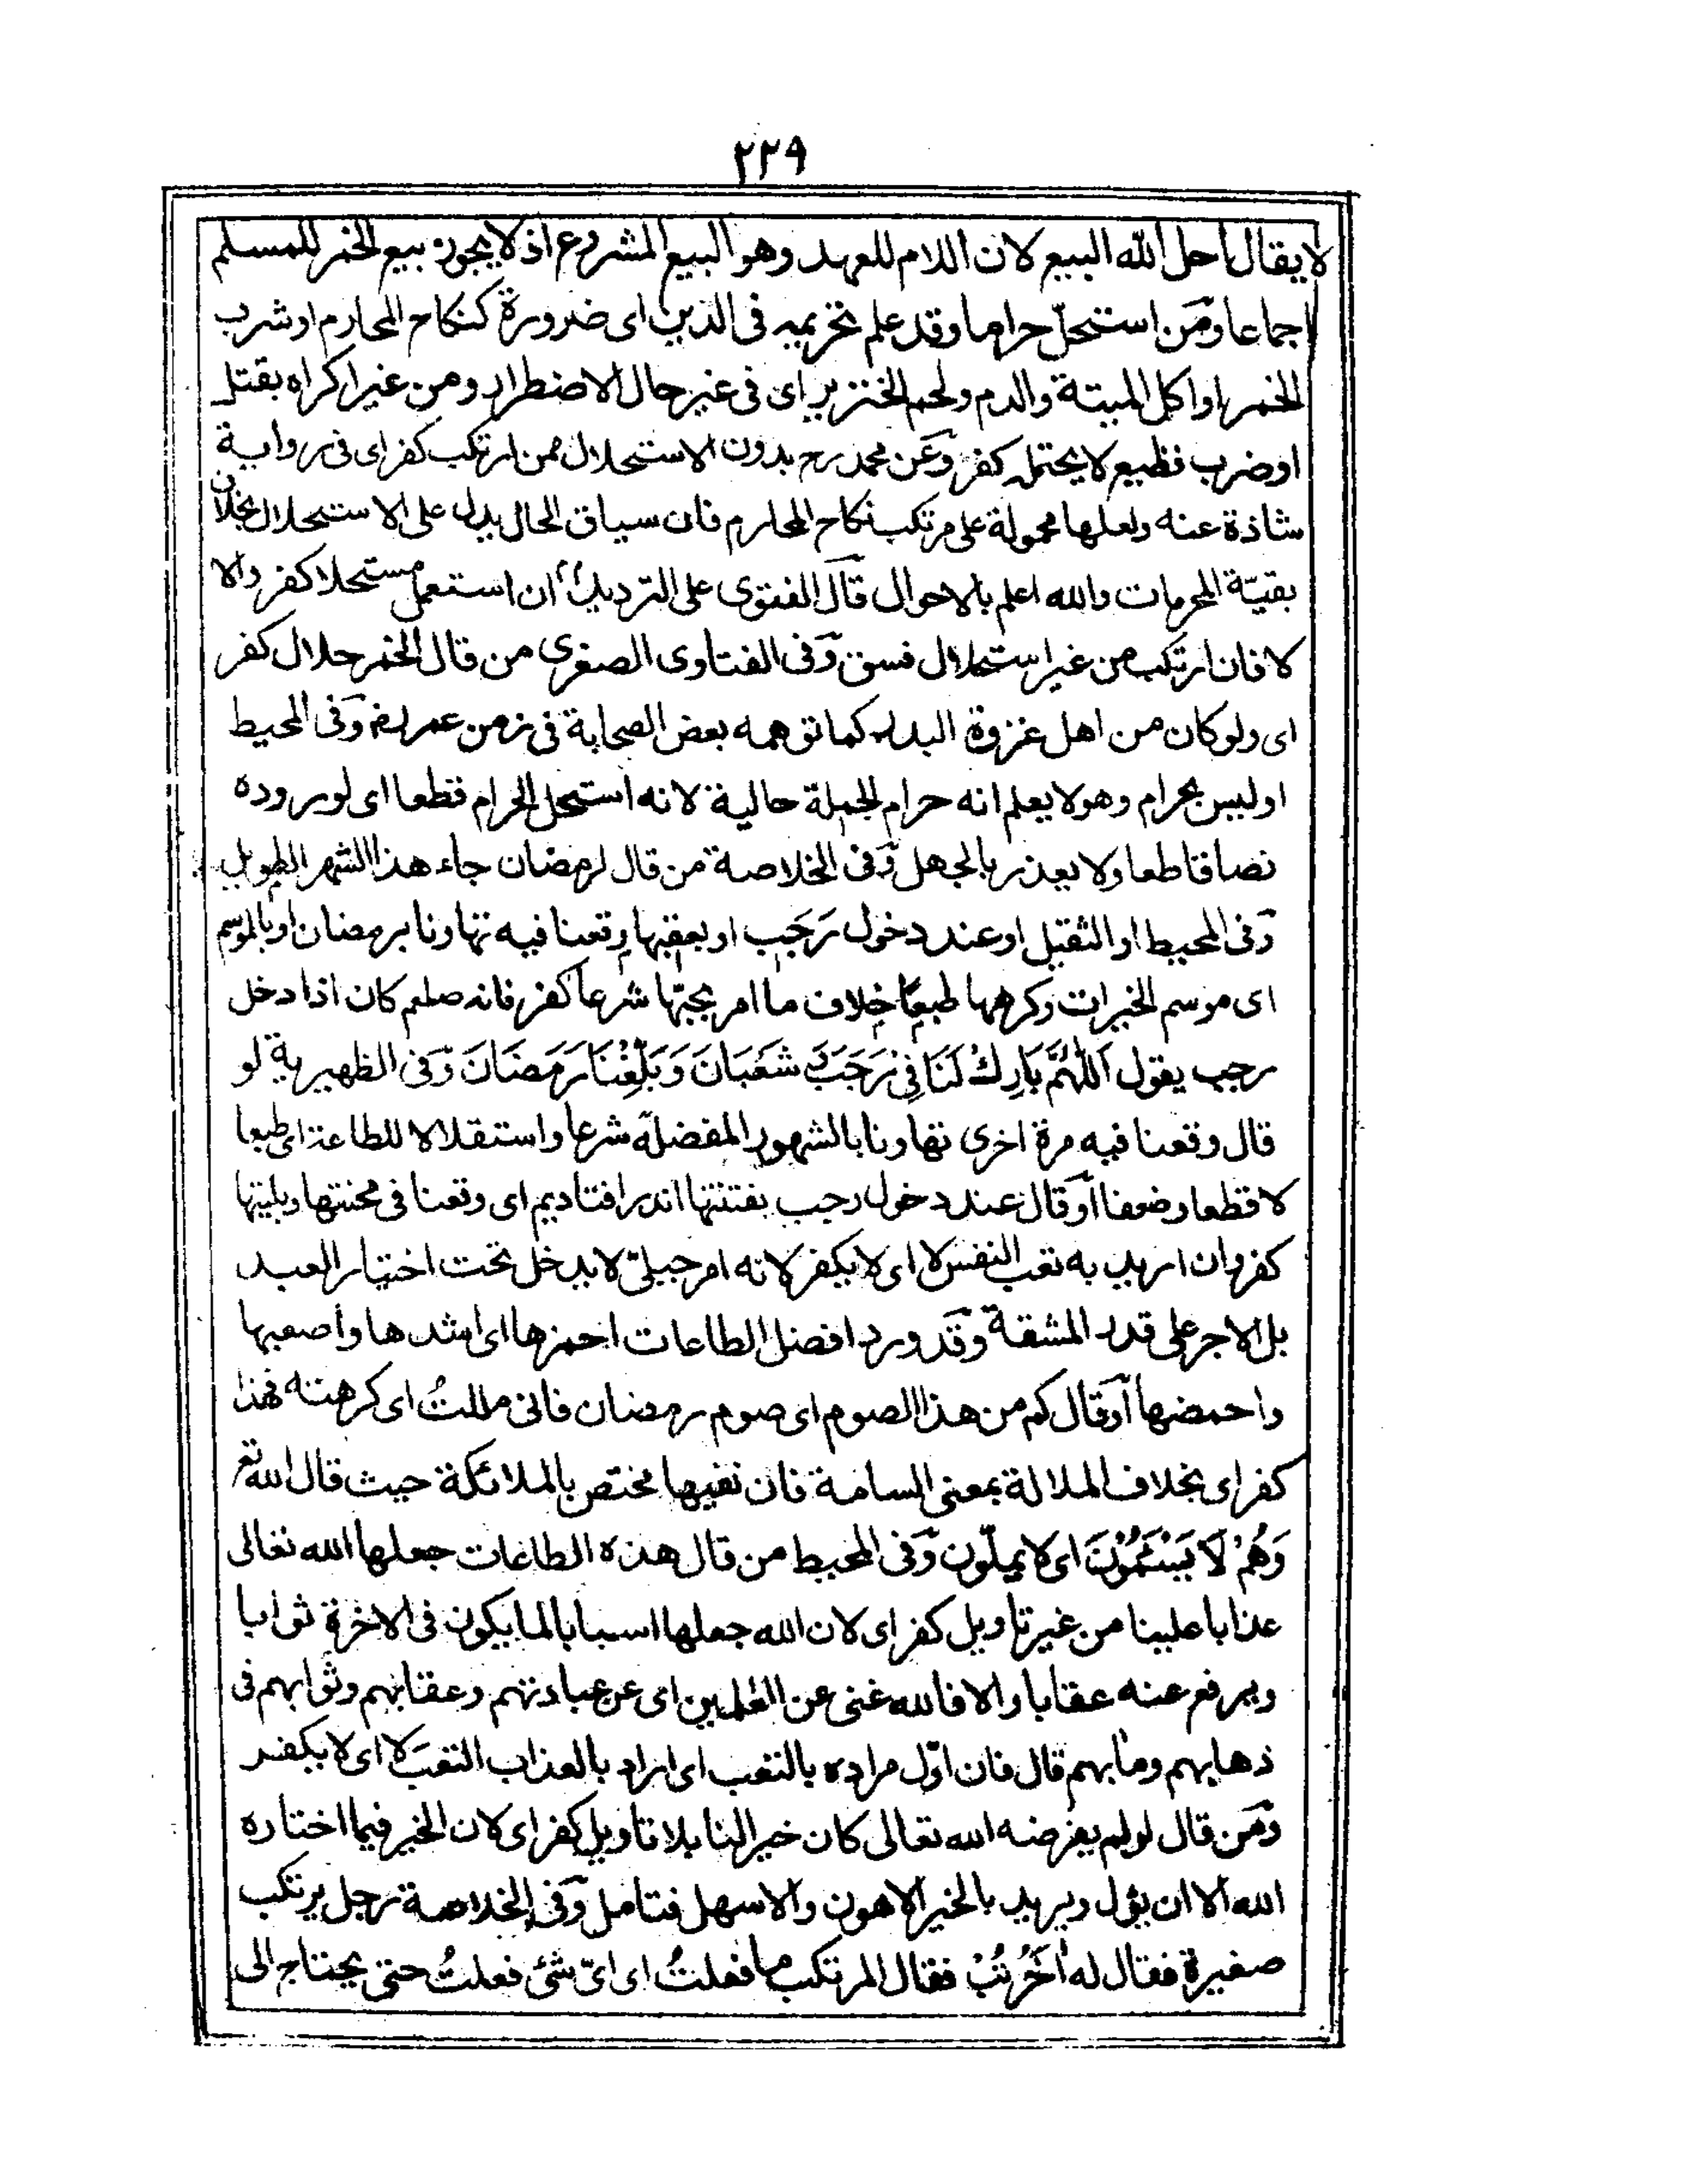 ٢٢٩
لا يقال احل الله البيع لان اللام للعهد وهو البيع المشروع اذ لا يجوز بيع الخمر للمسلم
اجماعا ومن استحلّ حراما وقد علم تحريمه فى الدين اى ضرورة كنكاح المحارم او شرب
الخمر او اكل الميتة والدم ولحم الخنزير اى فى غير حال الاضطرار ومن غير اكراه بقتل
او ضرب فظيع لا يحتمله كفر وعن محمد رح بدون الاستحلال ممن ارتكب كفر اى فى رواية
شاذة عنه ولعلها محمولة على مرتكب نكاح المحارم فان سياق الحال يدل على الاستحلال بخلاف
بقيّة المحرمات والله اعلم بالاحوال قال الفتوى على الترديد ان استعمل مستحلا كفر والا
لا فان ارتكب من غير استحلال فسق وفى الفتاوى الصغرى من قال الخمر حلال كفر
اى ولو كان من اهل غزوة البدر كما توهمه بعض الصحابة فى زمن عمر رض وفى المحيط
او ليس بحرام وهو لا يعلم انه حرام الجملة حالية لانه استحل الحرام قطعا اى لوروده
نصا قاطعا ولا يعذر بالجهل وفى الخلاصة من قال لرمضان جاء هذا الشهر الطويل
وفى المحيط او الثقيل او عند دخول رَجَب او بعقبها وقعنا فيه تهاونا برمضان او بالموسم
اى موسم الخيرات وكرهها طبعًا خلاف ما امر بحبّها شرعا كفر فانه صلعم كان اذا دخل
رجب يقول اَللّٰهُمَّ بَارِكْ لَنَا فِىْ رَجَبَ وَ شَعْبَانَ وَبَلِّغْنَا رَمَضَانَ وفى الظهيرية لو
قال وقعنا فيه مرة اخرى تهاونا بالشهور المفضلة شرعا واستقلالا للطاعة اى طبعا
لا قطعا وضعفا او قال عند دخول رجب بفتنتها اندر افتاديم اى وقعنا فى محنتها وبليتها
كفر وان اريد به تعب النفس لا اى لا يكفر لانه امر جبلىّ لا يدخل تحت اختيار العبد
بل الاجر على قدر المشقة وقد ورد افضل الطاعات احمزها اى اشدها واصعبها
واحمضها او قال كم من هذا الصوم اى صوم رمضان فانى مللتُ اى كرهته فهذا
كفر اى بخلاف الملالة بمعنى السامة فان نفيها مختص بالملائكة حيث قال الله تعر
وَهُمْ لَا يَسْئَمُوْنَ اى لا يملّون وفى المحيط من قال هذه الطاعات جعلها الله تعالى
عذابا علينا من غير تاويل كفر اى لان الله جعلها اسبابا لما يكون فى الاخرة ثوابا
ويرفع عنه عقابا والا فالله غنى عن العلمين اى عن عبادتهم وعقابهم وثوابهم فى
ذهابهم ومابهم قال فان اوّل مراده بالتعب اى اراد بالعذاب التعبَ لا اى لا يكفر
ومن قال لو لم يفرضه الله تعالى كان خيرا لنا بلا تاويل كفر اى لان الخير فيما اختاره
الله الا ان يؤل ويريد بالخير الاهون والاسهل فتامل وفى الخلاصة رجل يرتكب
صغيرة فقال له اٰخَرُ تُبْ فقال المرتكب ما فعلتُ اى اىّ شئ فعلتُ حتى يحتاج الى